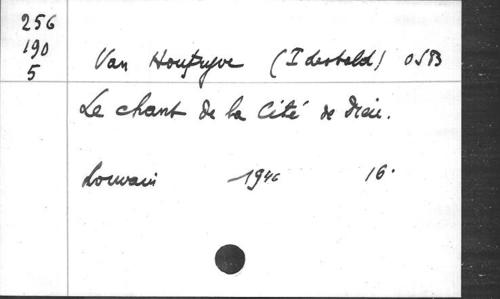 256
190
5
Van Houtryve (Idesbald) OSB
Le chant de la Cité de Dieu.
Louvain 1946 16°